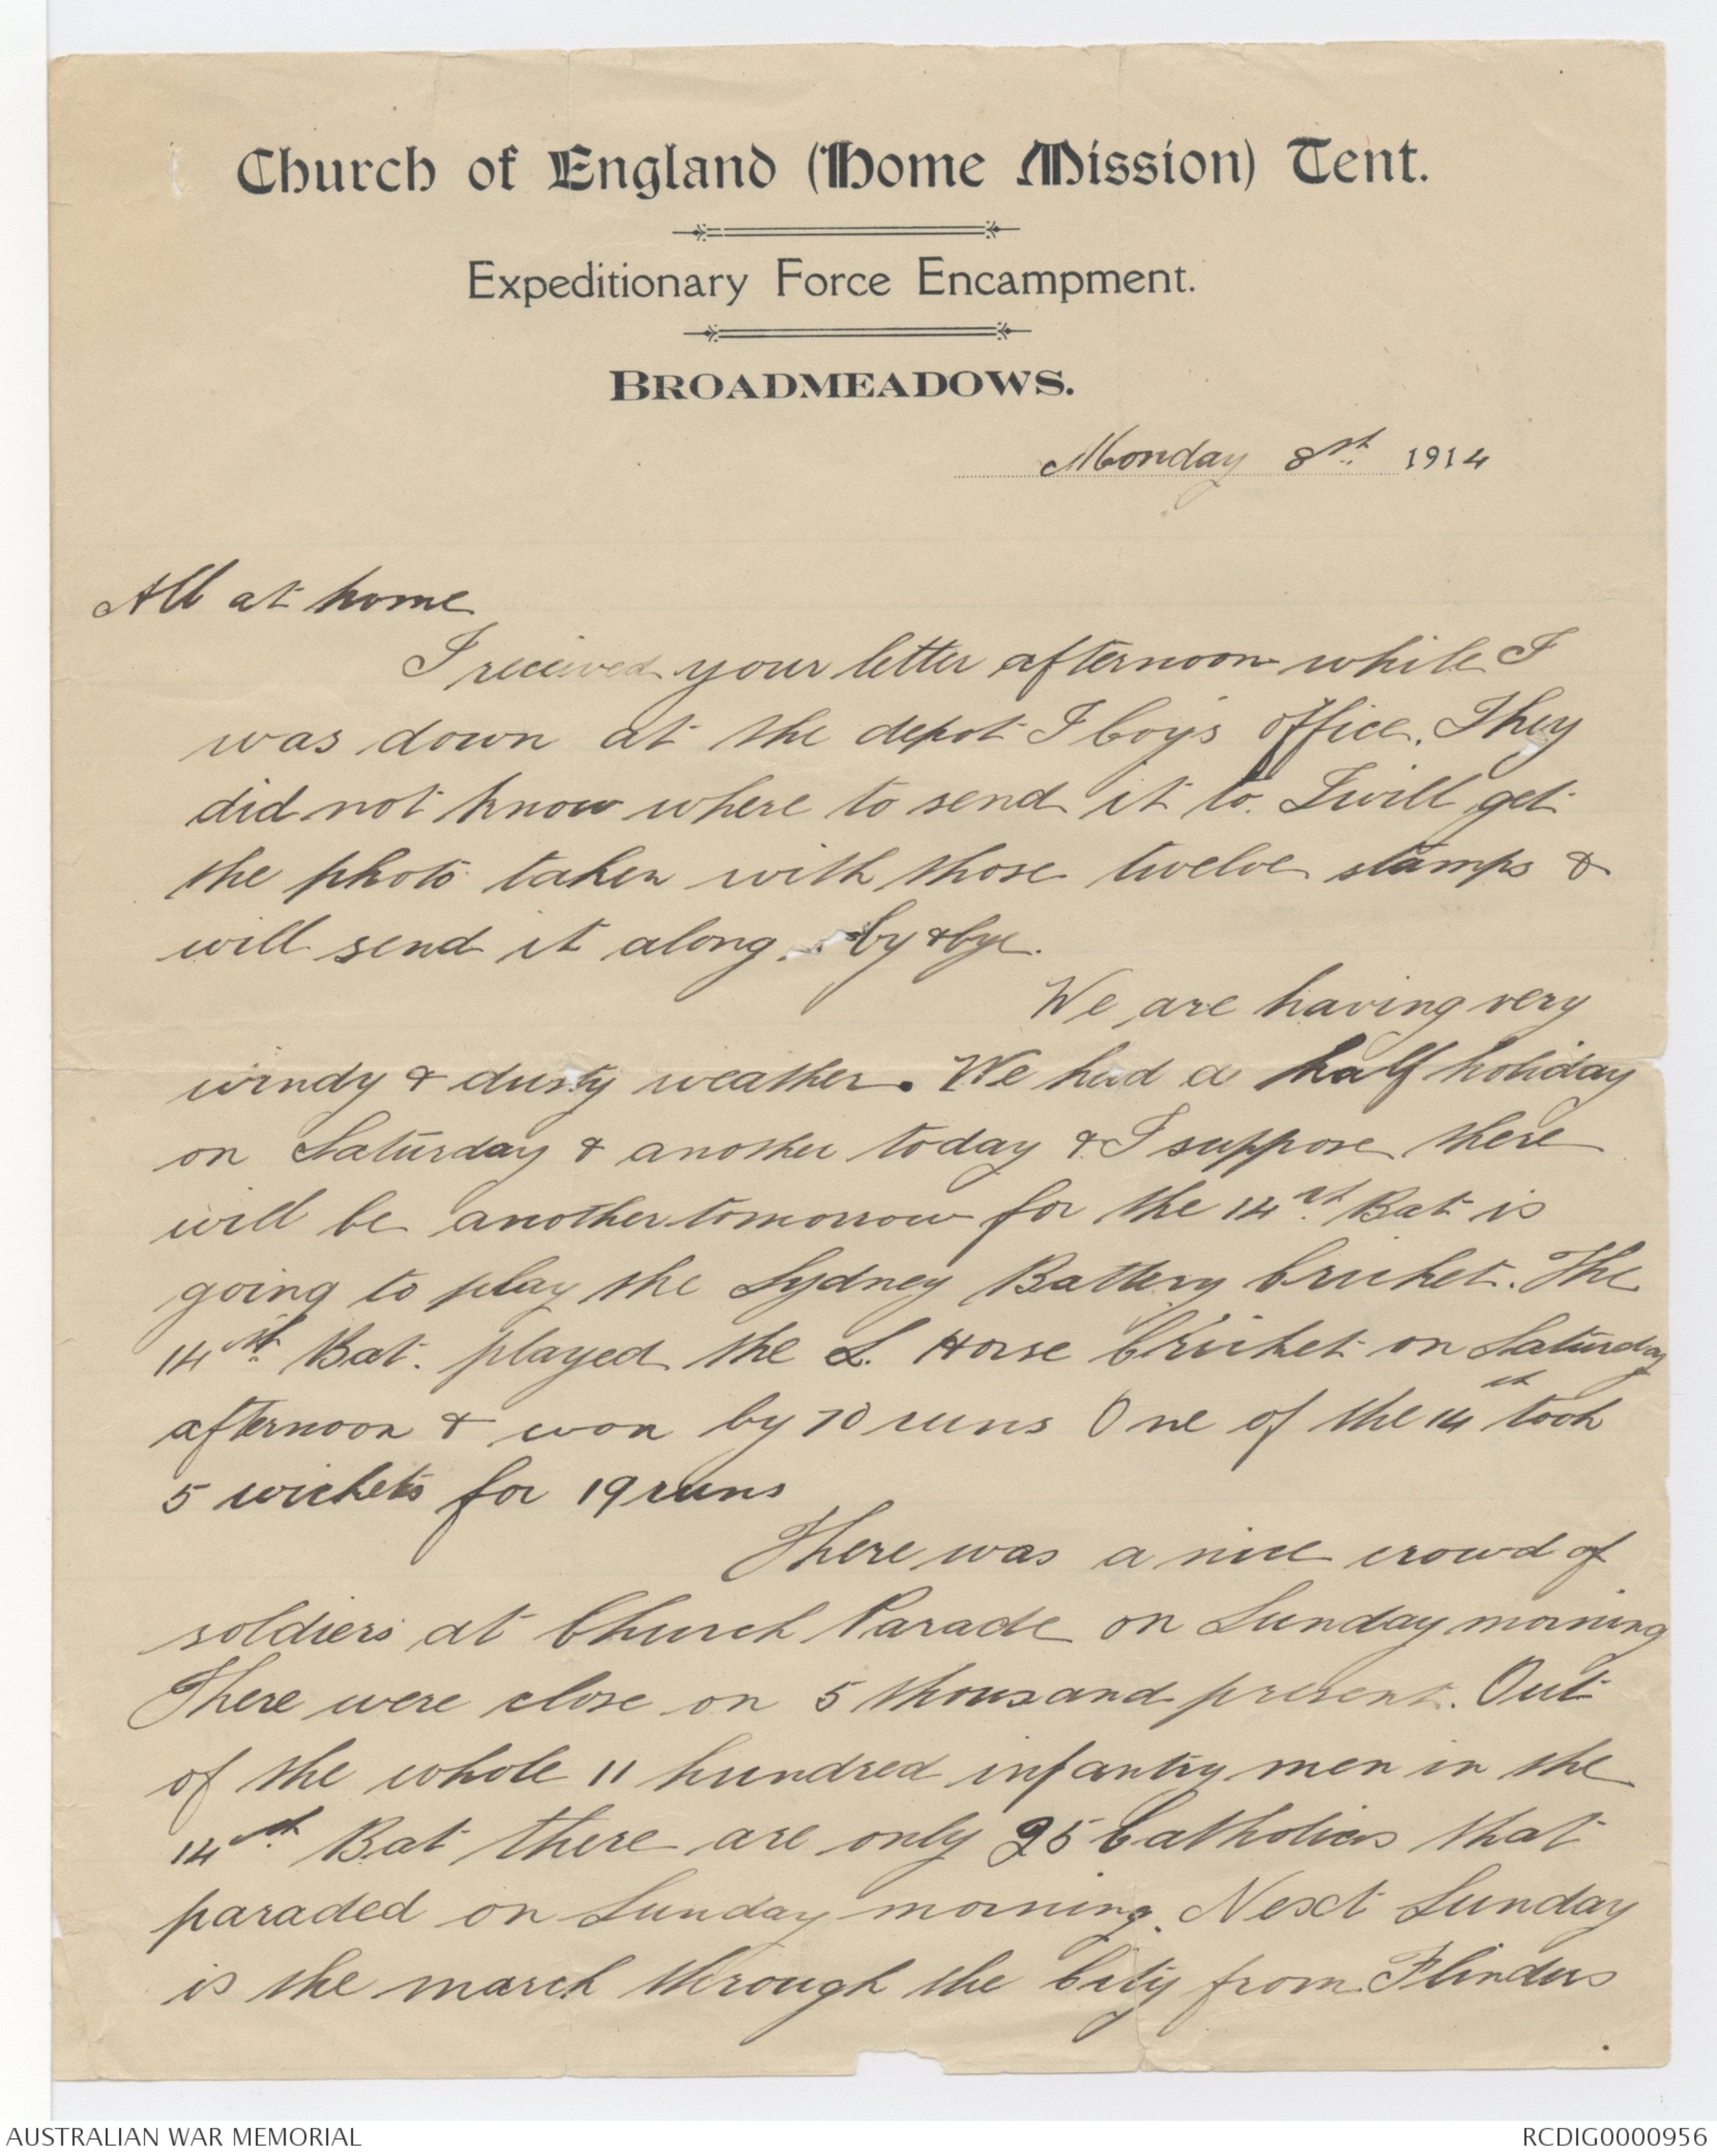 Church of England (Home Mission) Tent.
Expeditionary Force Encampment.
BROADMEADOWS.
Monday 8st. 1914
All at home
I received your letter afternoon while I
was down at the depot I Coy's office. They
did not know where to send it to. I will get
the photo taken with those twelve stamps &
will send it along by & bye.
We are having very
windy & dusty weather. We had a half holiday
on Saturday & another today & I suppose there
will be another tomorrow for the 14st. Bat is
going to play the Sydney Battery Cricket. The
14st. Bat. played the L. Horse Cricket on Saturday
afternoon & won by 70 runs One of the 14st took
5 wickets for 19 runs
There was a nice crowd of
soldiers at Church Parade on Sunday morning
There were close on 5 thousand present. Out
of the whole 11 hundred infantry men in the
14st. Bat there are only 25 Catholics that
paraded on Sunday morning. Next Sunday
is the march through the City from Flinders
AUSTRALIAN WAR MEMORIAL
RCDIG0000956